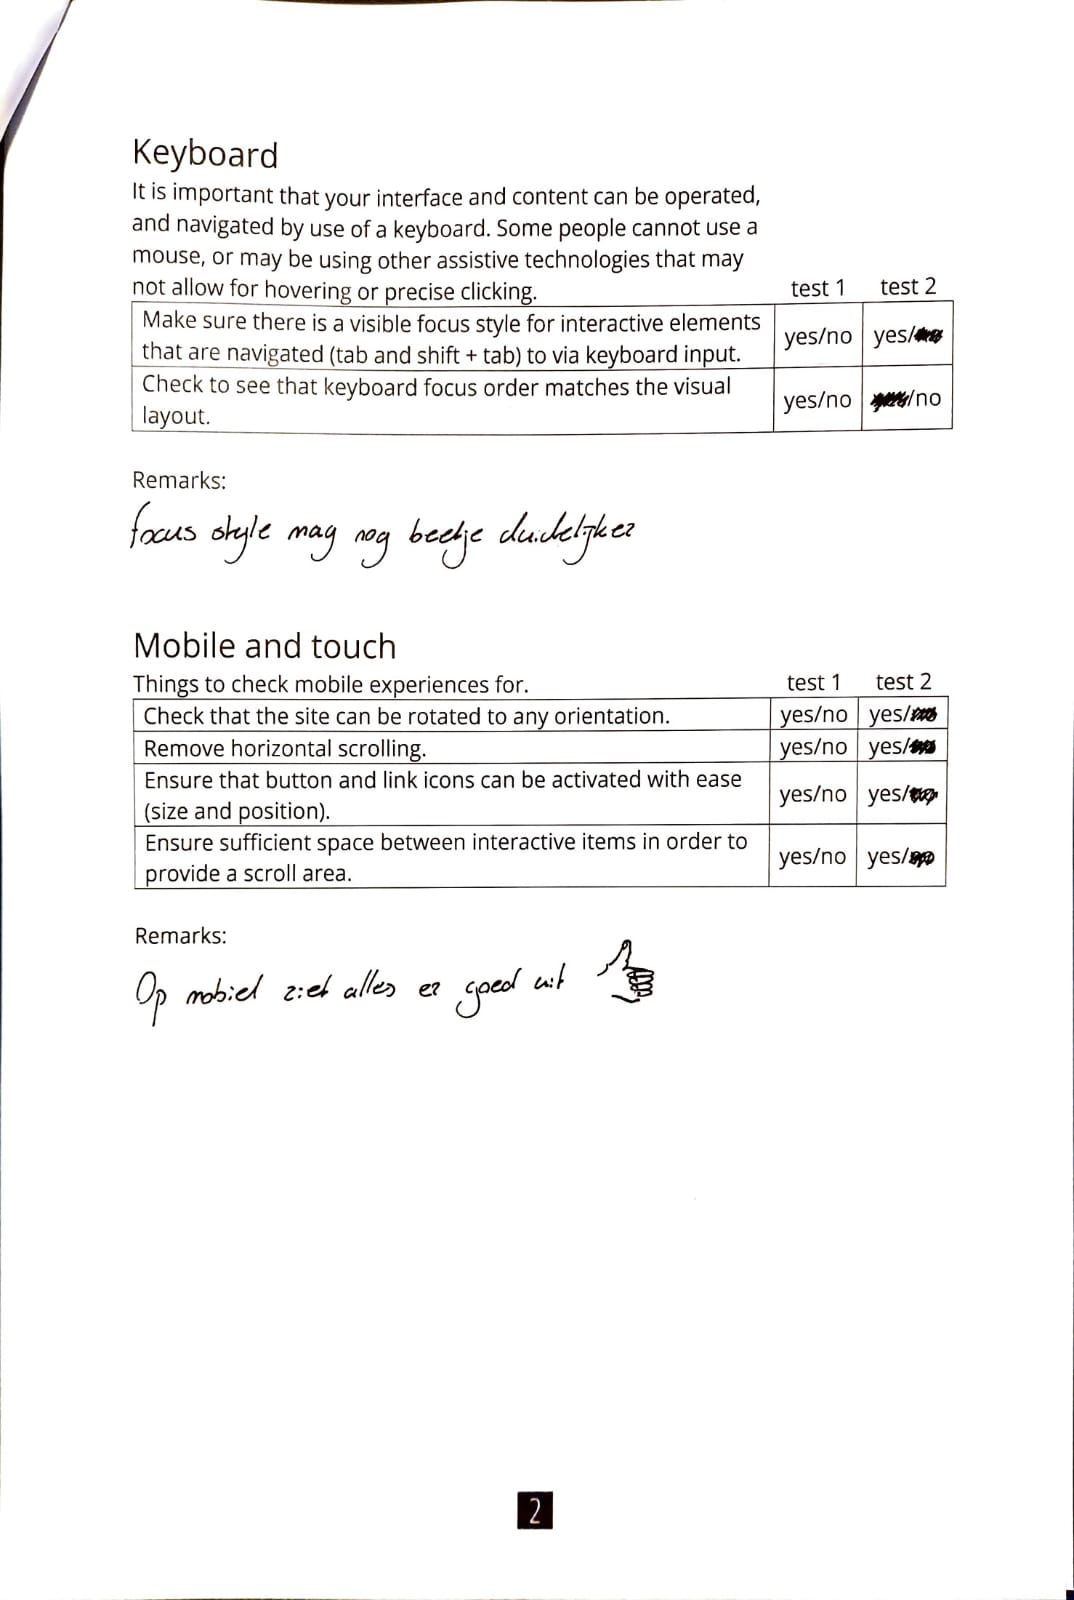 Keyboard
It is important that your interface and content can be operated,
and navigated by use of a keyboard. Some people cannot use a
mouse, or may be using other assistive technologies that may
not allow for hovering or precise clicking. test 1 test 2
Make sure there is a visible focus style for interactive elements
that are navigated (tab and shift + tab) to via keyboard input. yes/no yes/
Check to see that keyboard focus order matches the visual
layout. yes/no /no
Remarks:
focus style mag nog beetje duidelijker
Mobile and touch
Things to check mobile experiences for. test 1 test 2
Check that the site can be rotated to any orientation. yes/no yes/
Remove horizontal scrolling. yes/no yes/
Ensure that button and link icons can be activated with ease
(size and position). yes/no yes/
Ensure sufficient space between interactive items in order to
provide a scroll area. yes/no yes/
Remarks:
Op mobiel ziet alles er goed uit
2